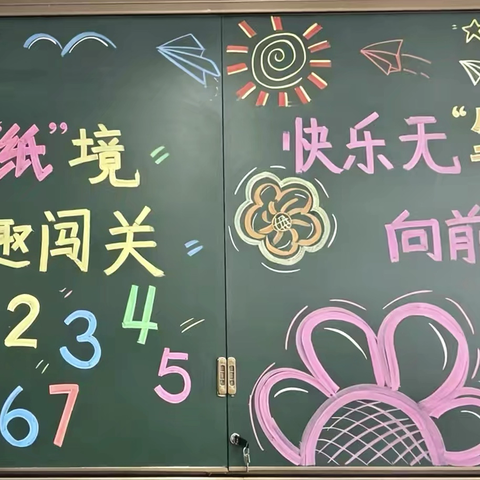 纸”境
趣闯关
2 3 4
5
6 7
快乐无“
向前